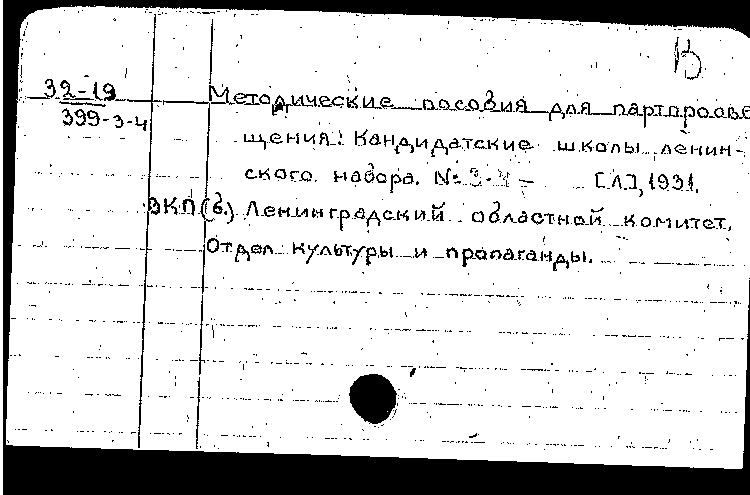 В
32-19
399-3-4
Методические пособия для партпросве
щения: Кандидатские школы ленин-
ского набора. №3-4- [Л.], 1931.
ВКП(б.) Ленинградский областной комитет.
Отдел культуры и пропаганды.